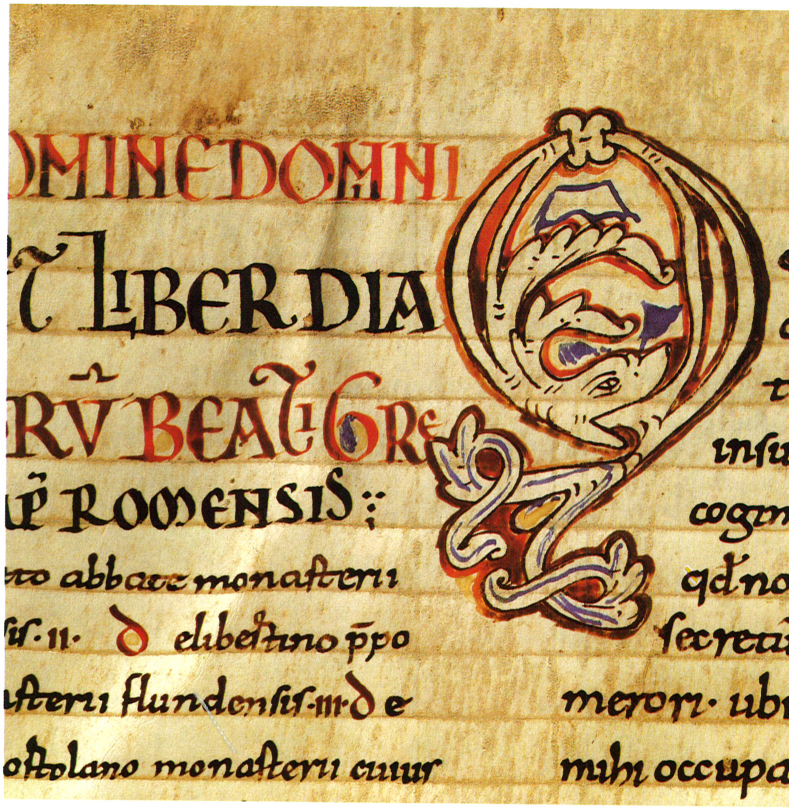 OMINE DOMNI
T LIBER DIA
ORŪ BEATI GRE
AP̄ ROMENSIS
to abbate monasterii
sis·II· d elibertino p̄po
asterii flundensis·III·d e
ostolano monasterii cuius
Q
t
insu
cogn
qđ no
secretū
merori· ubi
mihi occupa